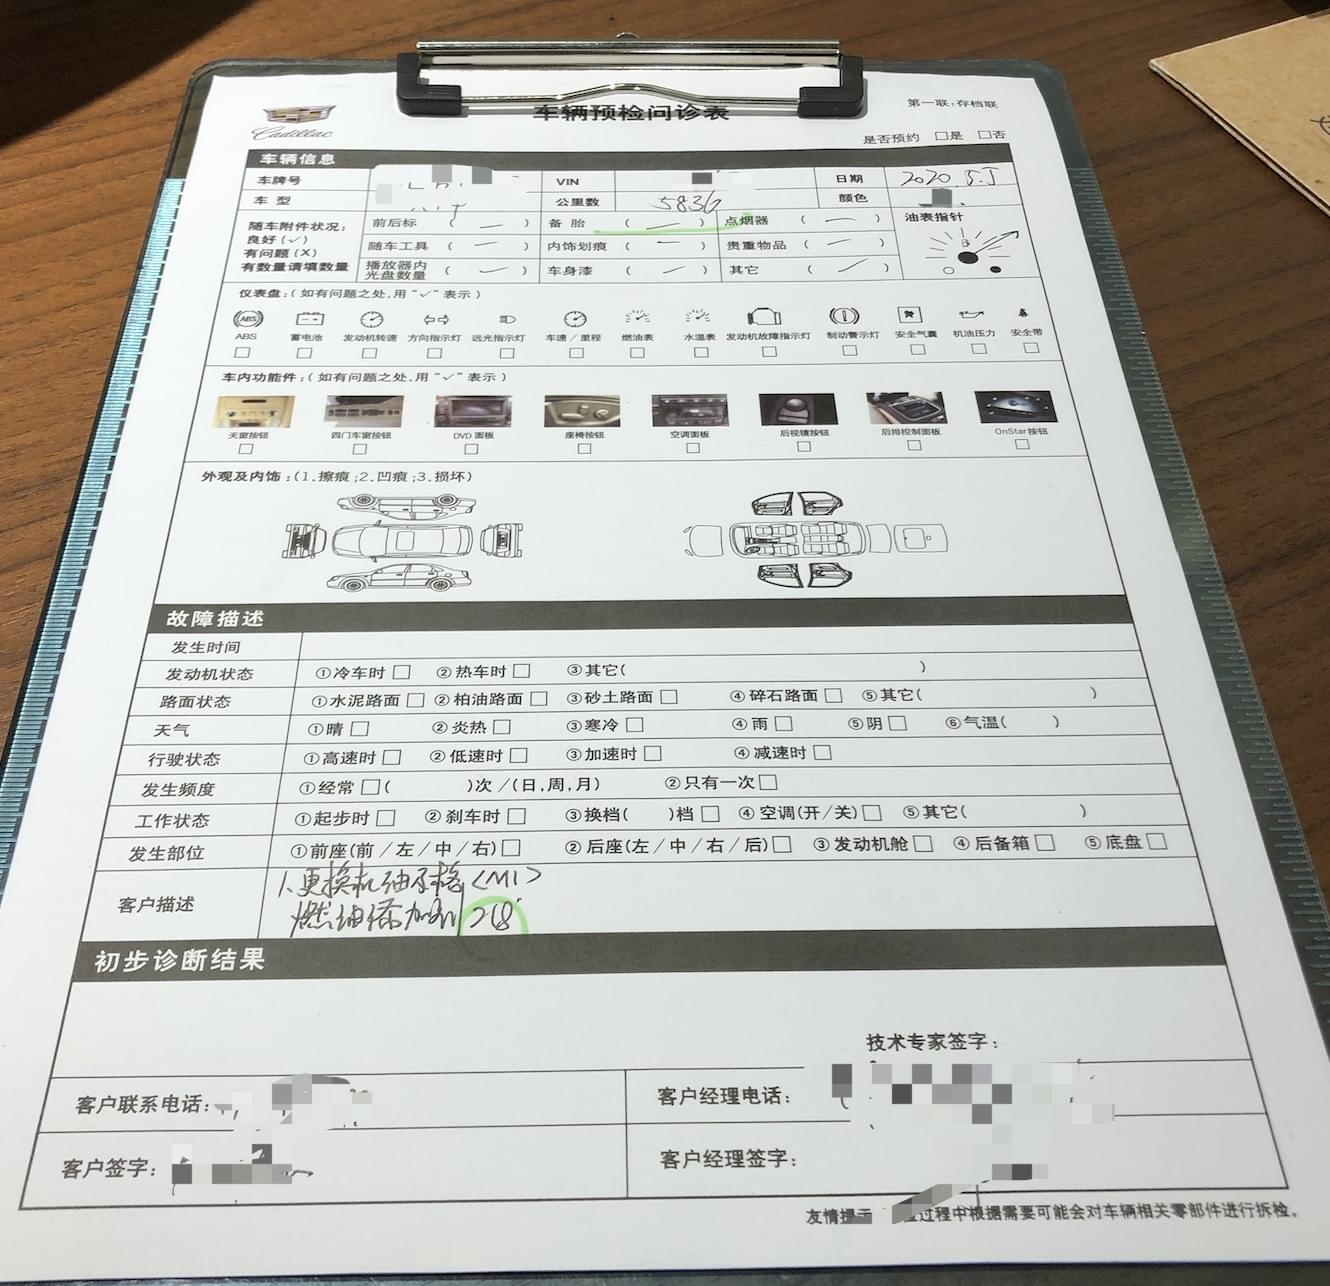 第一联:存档联
车辆预检问诊表
Cadillac
是否预约 □是 □否
车辆信息
车牌号 VIN 日期 2020.5.5
车 型 公里数 5836 颜色
随车附件状况: 前后标 ( — ) 备 胎 ( — ) 点烟器 ( — ) 油表指针
良好(✓)
有问题(X) 随车工具 ( — ) 内饰划痕 ( — ) 贵重物品 ( — )
有数量请填数量 播放器内光盘数量 ( — ) 车身漆 ( — ) 其它 ( — )
仪表盘:(如有问题之处,用“✓”表示)
ABS
ABS 蓄电池 发动机转速 方向指示灯 远光指示灯 车速/里程 燃油表 水温表 发动机故障指示灯 制动警示灯 安全气囊 机油压力 安全带
车内功能件:(如有问题之处,用“✓”表示)
天窗按钮 四门车窗按钮 DVD 面板 座椅按钮 空调面板 后视镜按钮 后排控制面板 OnStar按钮
外观及内饰:(1.擦痕;2.凹痕;3.损坏)
故障描述
发生时间
发动机状态 ①冷车时□ ②热车时□ ③其它( )
路面状态 ①水泥路面□ ②柏油路面□ ③砂土路面□ ④碎石路面□ ⑤其它( )
天气 ①晴□ ②炎热□ ③寒冷□ ④雨□ ⑤阴□ ⑥气温( )
行驶状态 ①高速时□ ②低速时□ ③加速时□ ④减速时□
发生频度 ①经常□( )次/(日,周,月) ②只有一次□
工作状态 ①起步时□ ②刹车时□ ③换档( )档□ ④空调(开/关)□ ⑤其它( )
发生部位 ①前座(前/左/中/右)□ ②后座(左/中/右/后)□ ③发动机舱□ ④后备箱□ ⑤底盘□
1.更换机油子格<M1>
客户描述
燃油添加剂
初步诊断结果
技术专家签字:
客户联系电话: 客户经理电话:
客户签字: 客户经理签字:
友情提示 过程中根据需要可能会对车辆相关零部件进行拆检。